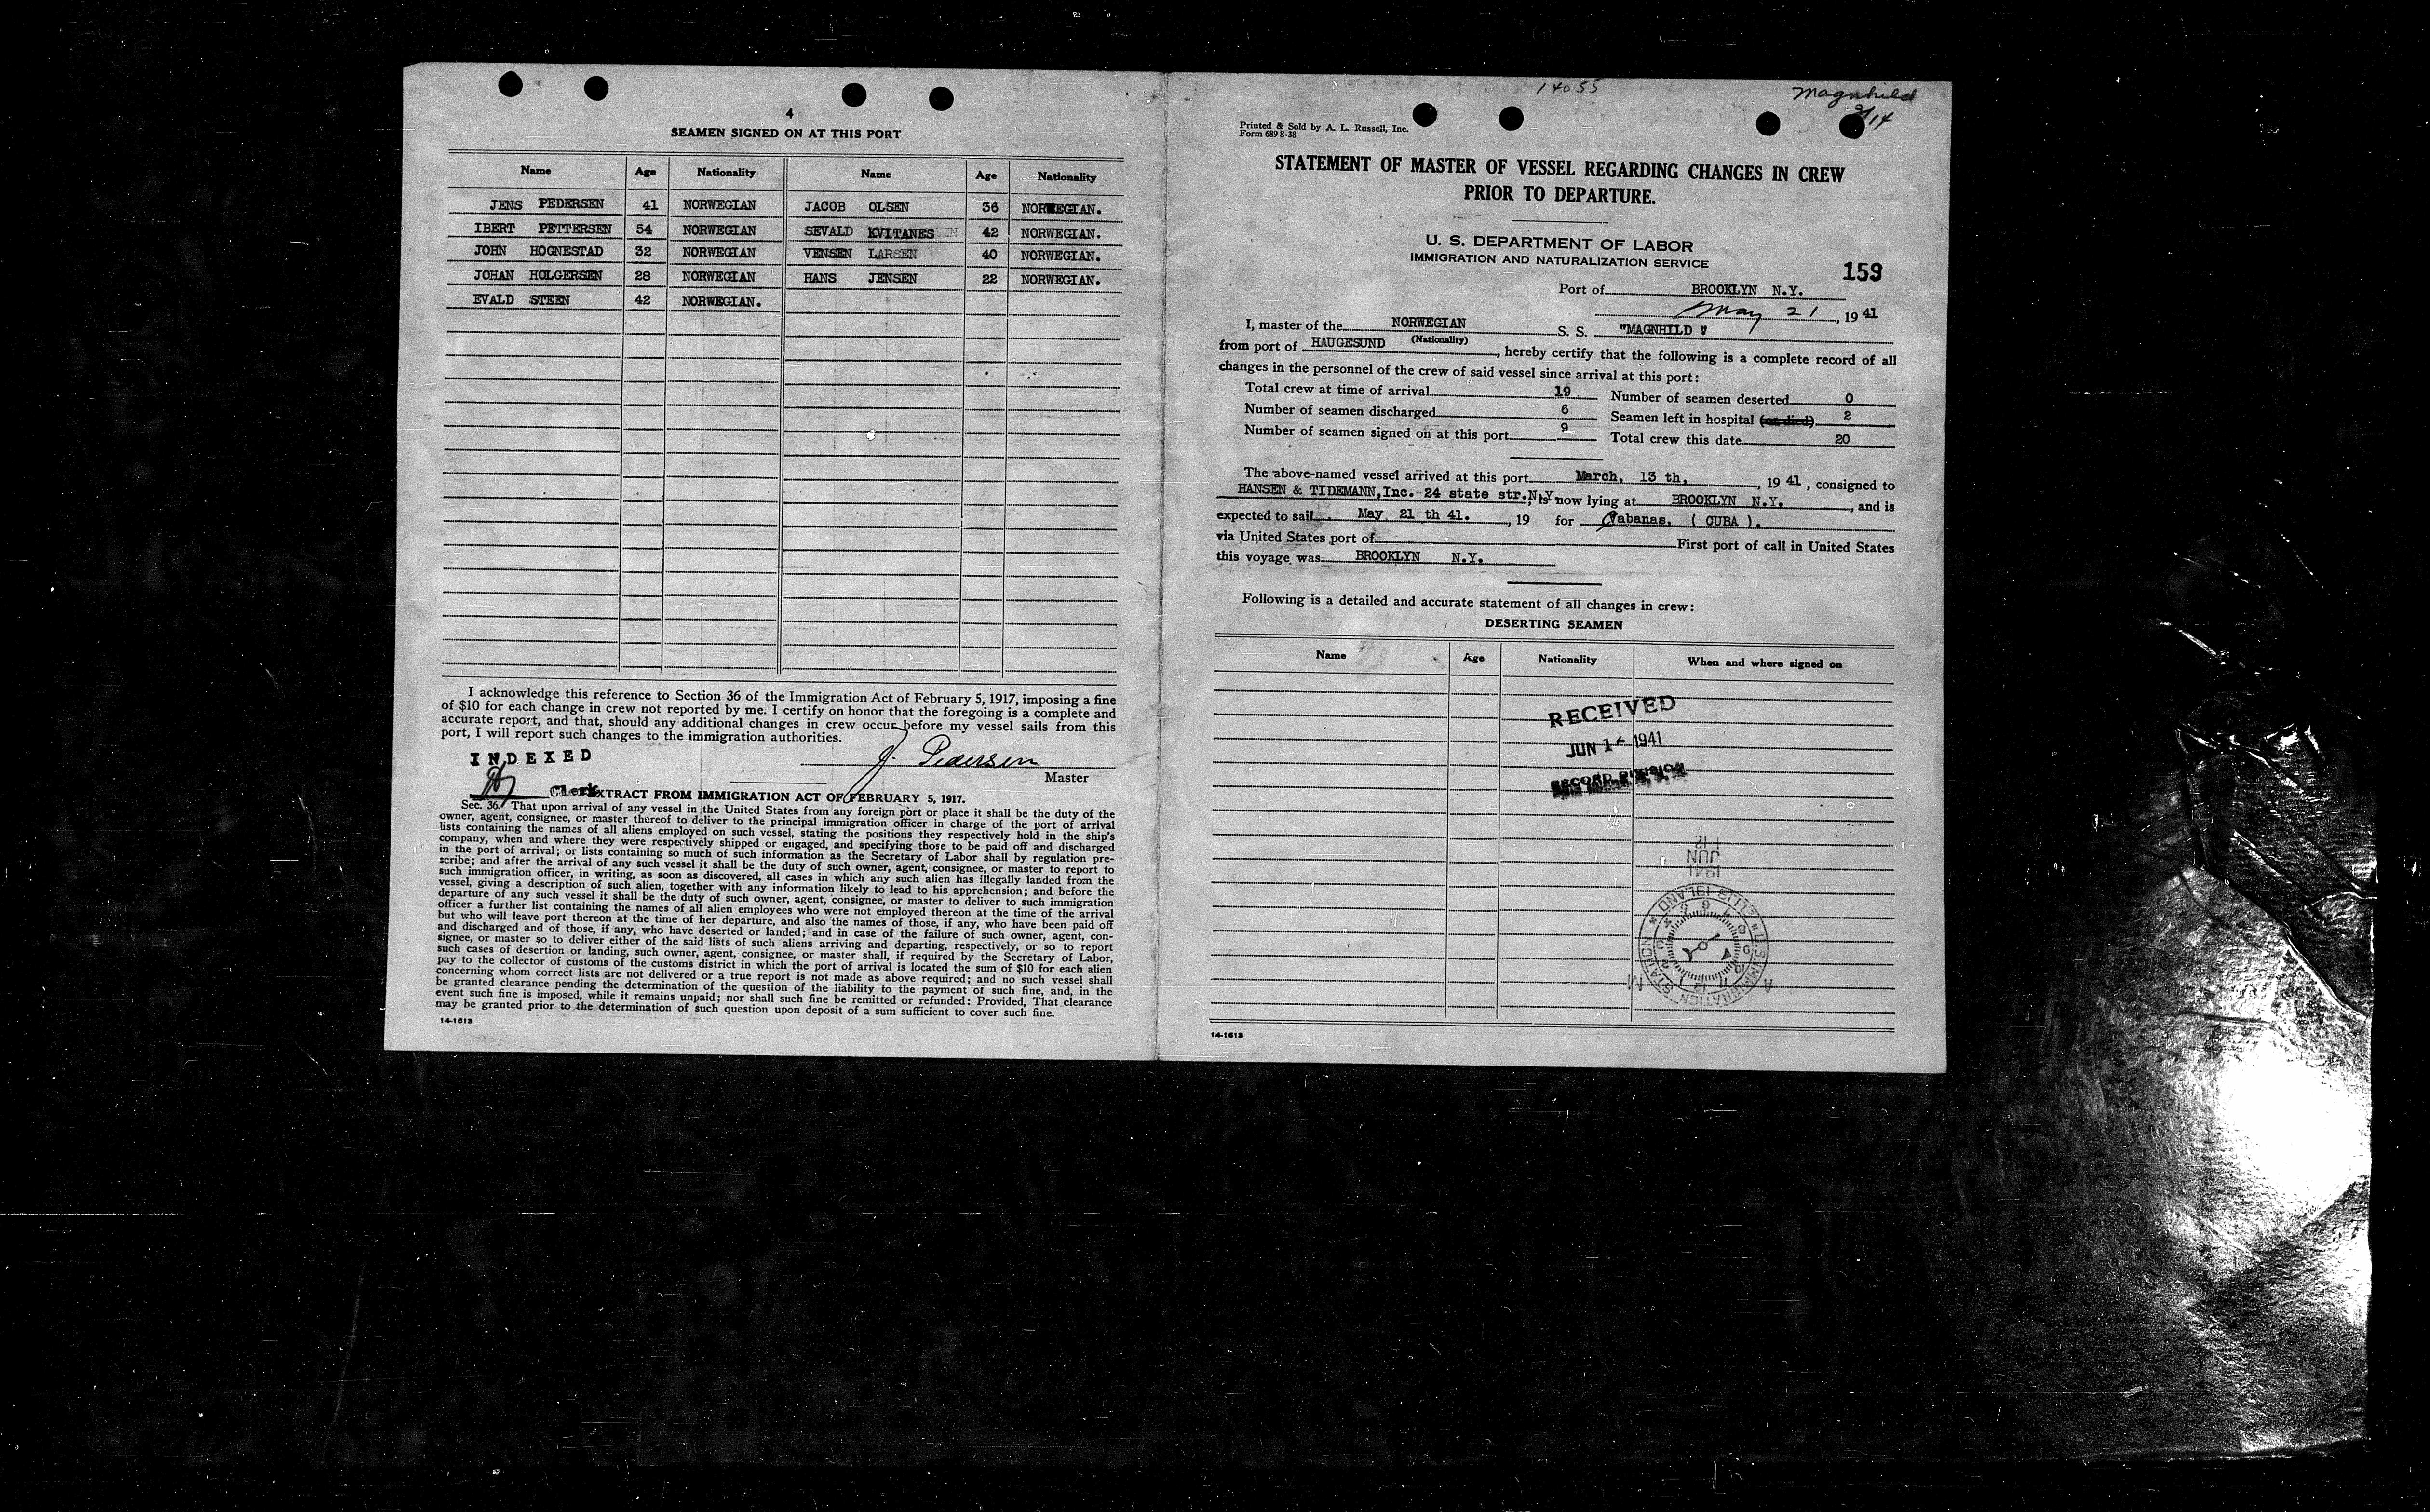 4
SEAMEN SIGNED ON AT THIS PORT
Name Age Nationality Name Age Nationality
JENS PEDERSEN 41 NORWEGIAN JACOB OLSEN 36 NORWEGIAN.
IBERT PETTERSEN 54 NORWEGIAN SEVALD KVITANES 42 NORWEGIAN.
JOHN HOGNESTAD 32 NORWEGIAN VENSEN LARSEN 40 NORWEGIAN.
JOHAN HOLGERSEN 28 NORWEGIAN HANS JENSEN 22 NORWEGIAN.
EVALD STEEN 42 NORWEGIAN.
I acknowledge this reference to Section 36 of the Immigration Act of February 5, 1917, imposing a fine
of $10 for each change in crew not reported by me. I certify on honor that the foregoing is a complete and
accurate report, and that, should any additional changes in crew occur before my vessel sails from this
port, I will report such changes to the immigration authorities.
INDEXED
J. Pedersen
Master
Clerk
EXTRACT FROM IMMIGRATION ACT OF FEBRUARY 5, 1917.
Sec. 36. That upon arrival of any vessel in the United States from any foreign port or place it shall be the duty of the
owner, agent, consignee, or master thereof to deliver to the principal immigration officer in charge of the port of arrival
lists containing the names of all aliens employed on such vessel, stating the positions they respectively hold in the ship's
company, when and where they were respectively shipped or engaged, and specifying those to be paid off and discharged
in the port of arrival; or lists containing so much of such information as the Secretary of Labor shall by regulation pre-
scribe; and after the arrival of any such vessel it shall be the duty of such owner, agent, consignee, or master to report to
such immigration officer, in writing, as soon as discovered, all cases in which any such alien has illegally landed from the
vessel, giving a description of such alien, together with any information likely to lead to his apprehension; and before the
departure of any such vessel it shall be the duty of such owner, agent, consignee, or master to deliver to such immigration
officer a further list containing the names of all alien employees who were not employed thereon at the time of the arrival
but who will leave port thereon at the time of her departure, and also the names of those, if any, who have been paid off
and discharged and of those, if any, who have deserted or landed; and in case of the failure of such owner, agent, con-
signee, or master so to deliver either of the said lists of such aliens arriving and departing, respectively, or so to report
such cases of desertion or landing, such owner, agent, consignee, or master shall, if required by the Secretary of Labor,
pay to the collector of customs of the customs district in which the port of arrival is located the sum of $10 for each alien
concerning whom correct lists are not delivered or a true report is not made as above required; and no such vessel shall
be granted clearance pending the determination of the question of the liability to the payment of such fine, and, in the
event such fine is imposed, while it remains unpaid; nor shall such fine be remitted or refunded: Provided, That clearance
may be granted prior to the determination of such question upon deposit of a sum sufficient to cover such fine.
14-1613
14055
Magnhild
3/14
Printed & Sold by A. L. Russell, Inc.
Form 689 8-38
STATEMENT OF MASTER OF VESSEL REGARDING CHANGES IN CREW
PRIOR TO DEPARTURE.
U. S. DEPARTMENT OF LABOR
IMMIGRATION AND NATURALIZATION SERVICE
159
Port of BROOKLYN N.Y.
May 21, 19 41
I, master of the NORWEGIAN S. S. "MAGNHILD "
(Nationality)
from port of HAUGESUND, hereby certify that the following is a complete record of all
changes in the personnel of the crew of said vessel since arrival at this port:
Total crew at time of arrival 19 Number of seamen deserted 0
Number of seamen discharged 6 Seamen left in hospital (or died) 2
Number of seamen signed on at this port 9 Total crew this date 20
The above-named vessel arrived at this port March, 13 th, , 19 41, consigned to
HANSEN & TIDEMANN,Inc. 24 state str.N.Y., is now lying at BROOKLYN N.Y. , and is
expected to sail May 21 th 41. , 19 for Cabanas, ( CUBA ).
via United States port of First port of call in United States
this voyage was BROOKLYN N.Y.
Following is a detailed and accurate statement of all changes in crew:
DESERTING SEAMEN
Name Age Nationality When and where signed on
RECEIVED
JUN 14 1941
RECORD DIVISION
JUN
1941
U.S. IMMIGRATION STATION ELLIS ISLAND
14-1613